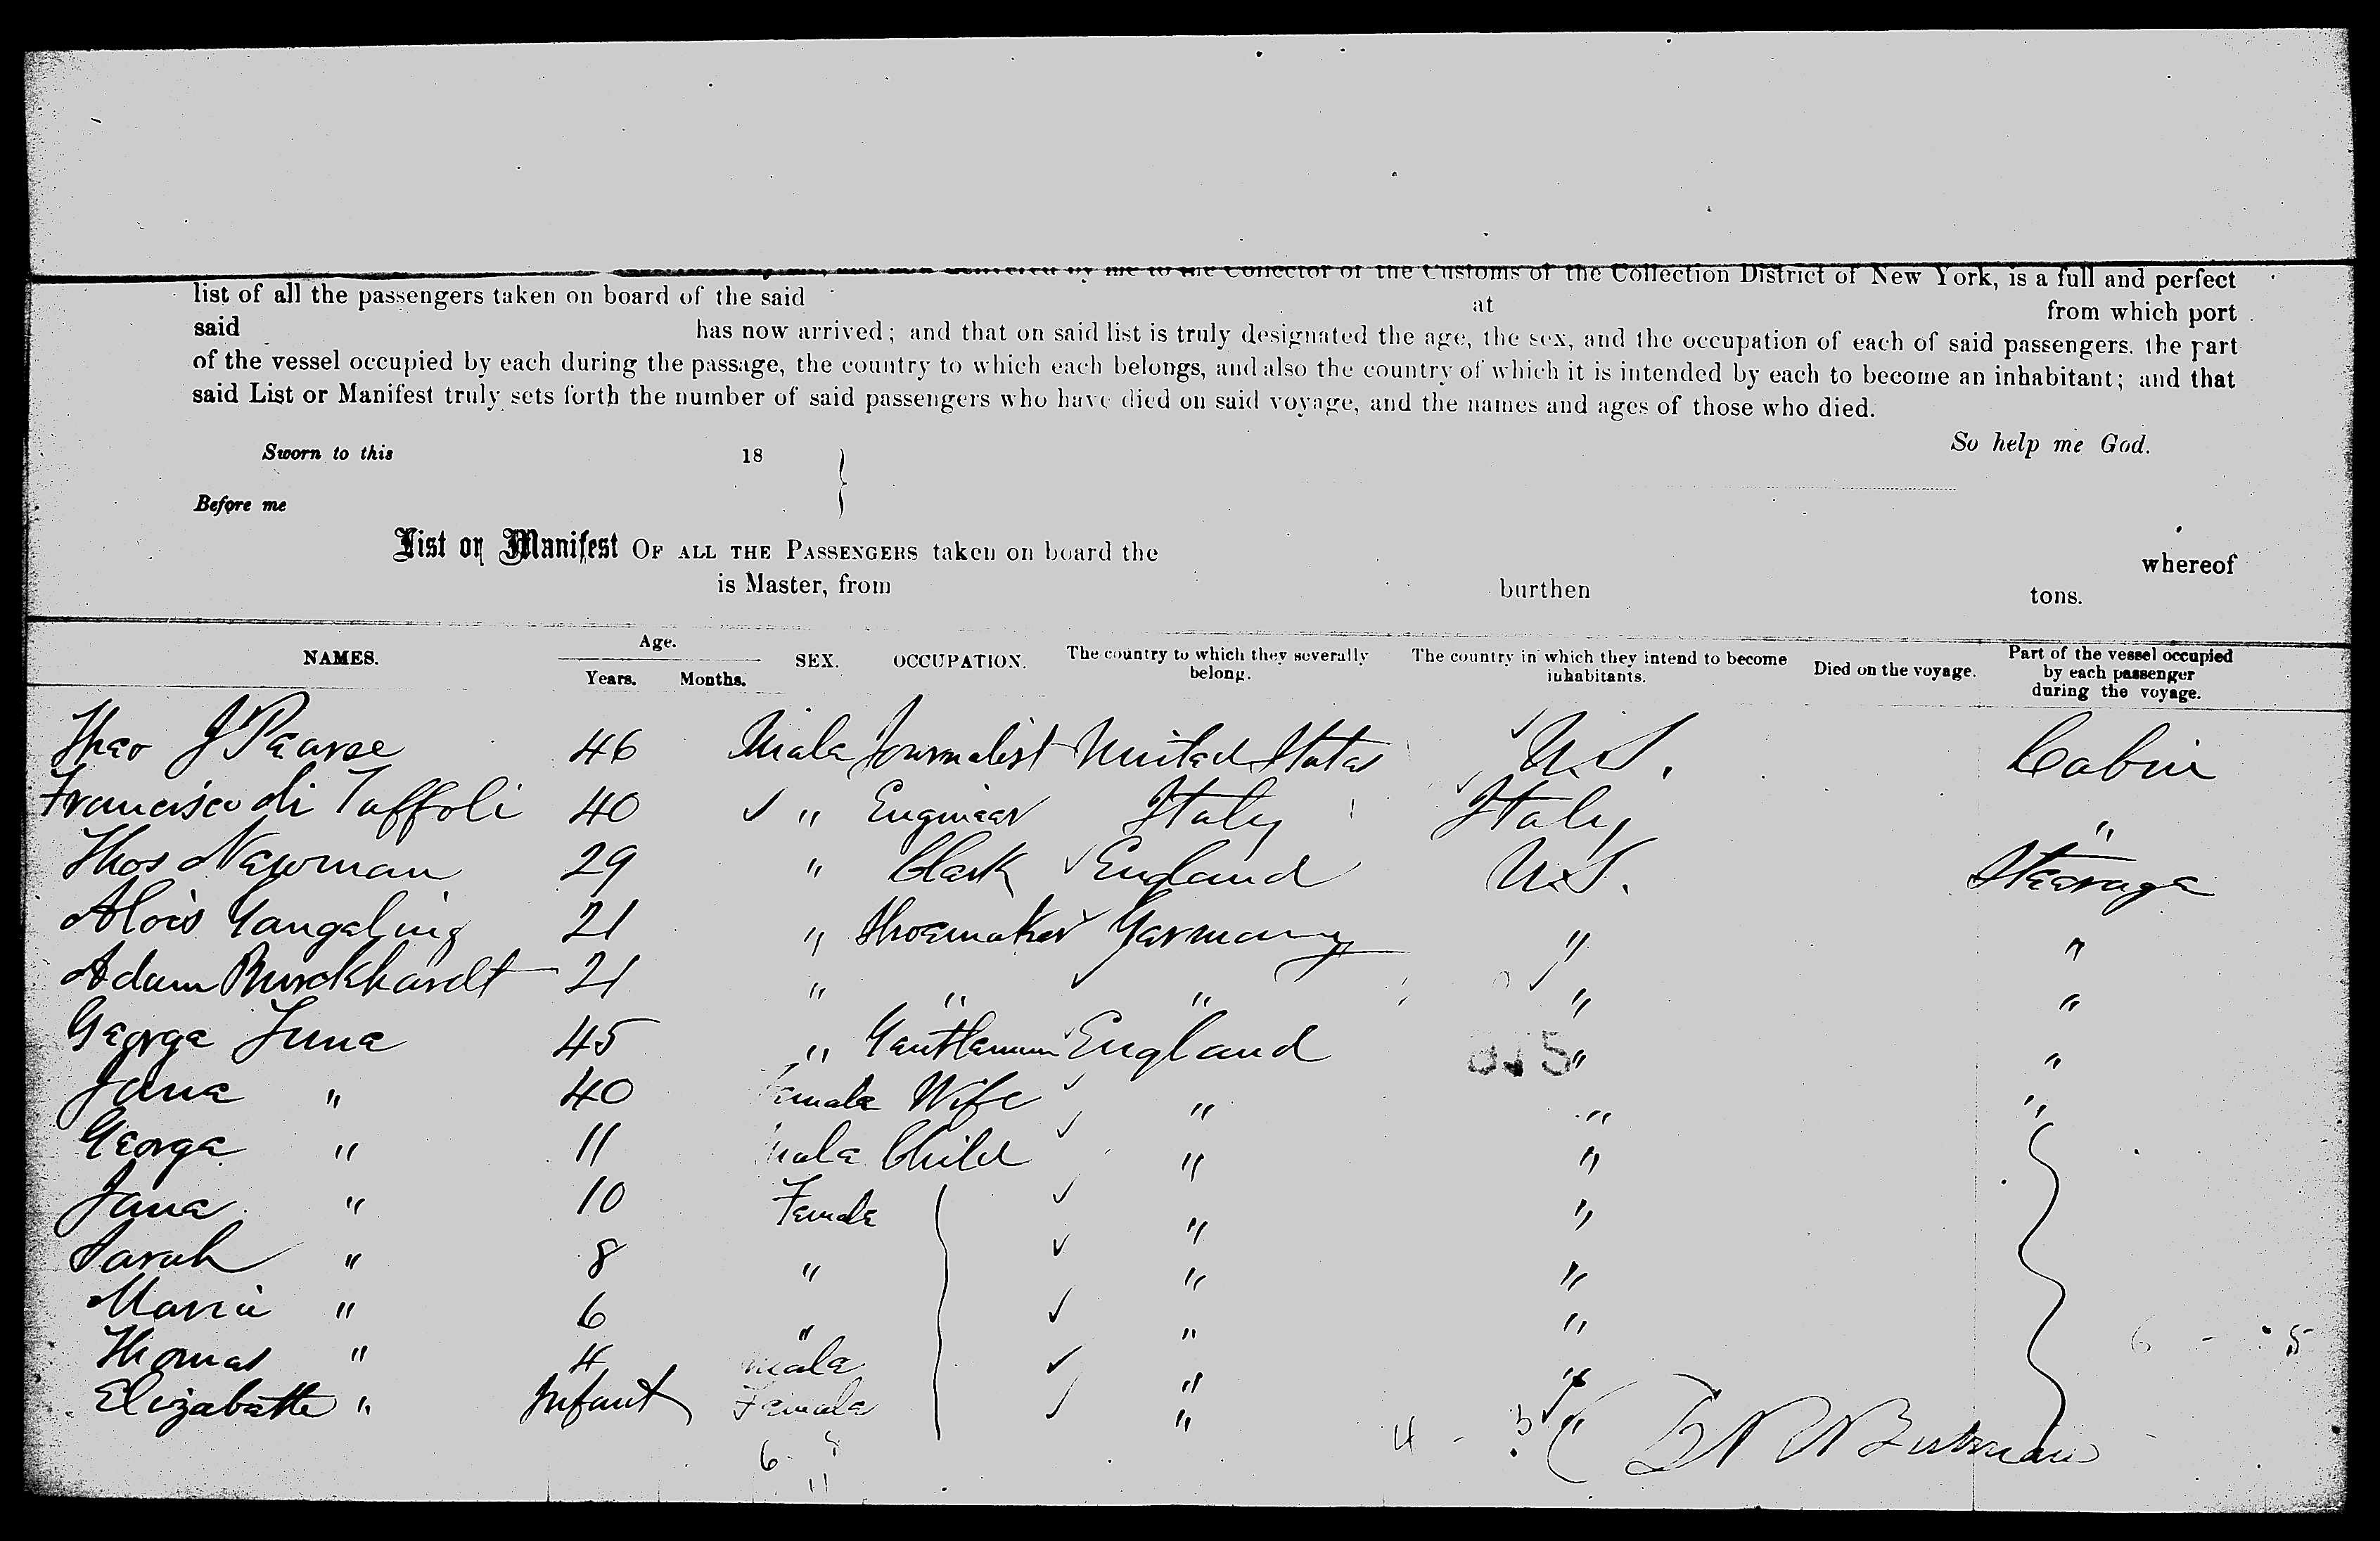 Collector of the Customs of the Collection District of New York, is a full and perfect
list of all the passengers taken on board of the said at from which port
said has now arrived; and that on said list is truly designated the age, the sex, and the occupation of each of said passengers. the part
of the vessel occupied by each during the passage, the country to which each belongs, and also the country of which it is intended by each to become an inhabitant; and that
said List or Manifest truly sets forth the number of said passengers who have died on said voyage, and the names and ages of those who died.
So help me God.
Sworn to this 18
Before me
List or Manifest OF ALL THE PASSENGERS taken on board the whereof
is Master, from burthen tons.
NAMES. Age. Years. Months. SEX. OCCUPATION. The country to which they severally belong. The country in which they intend to become inhabitants. Died on the voyage. Part of the vessel occupied by each passenger during the voyage.
Theo J Pearse 46 Male Journalist United States U.S. Cabin
Francisco di Taffoli 40 " Engineer Italy Italy "
Thos Newman 29 " Clerk England U.S. Steerage
Alois 21 " Shoemaker Germany " "
Adam Burckhardt 21 " " " " "
George June 45 " Gentleman England " "
Jane " 40 Female Wife " " "
George " 11 Male Child " "
Jane " 10 Female " "
Sarah " 8 " " "
Maria " 6 " " "
Thomas " 4 Male " "
Elizabeth " Infant Female " "